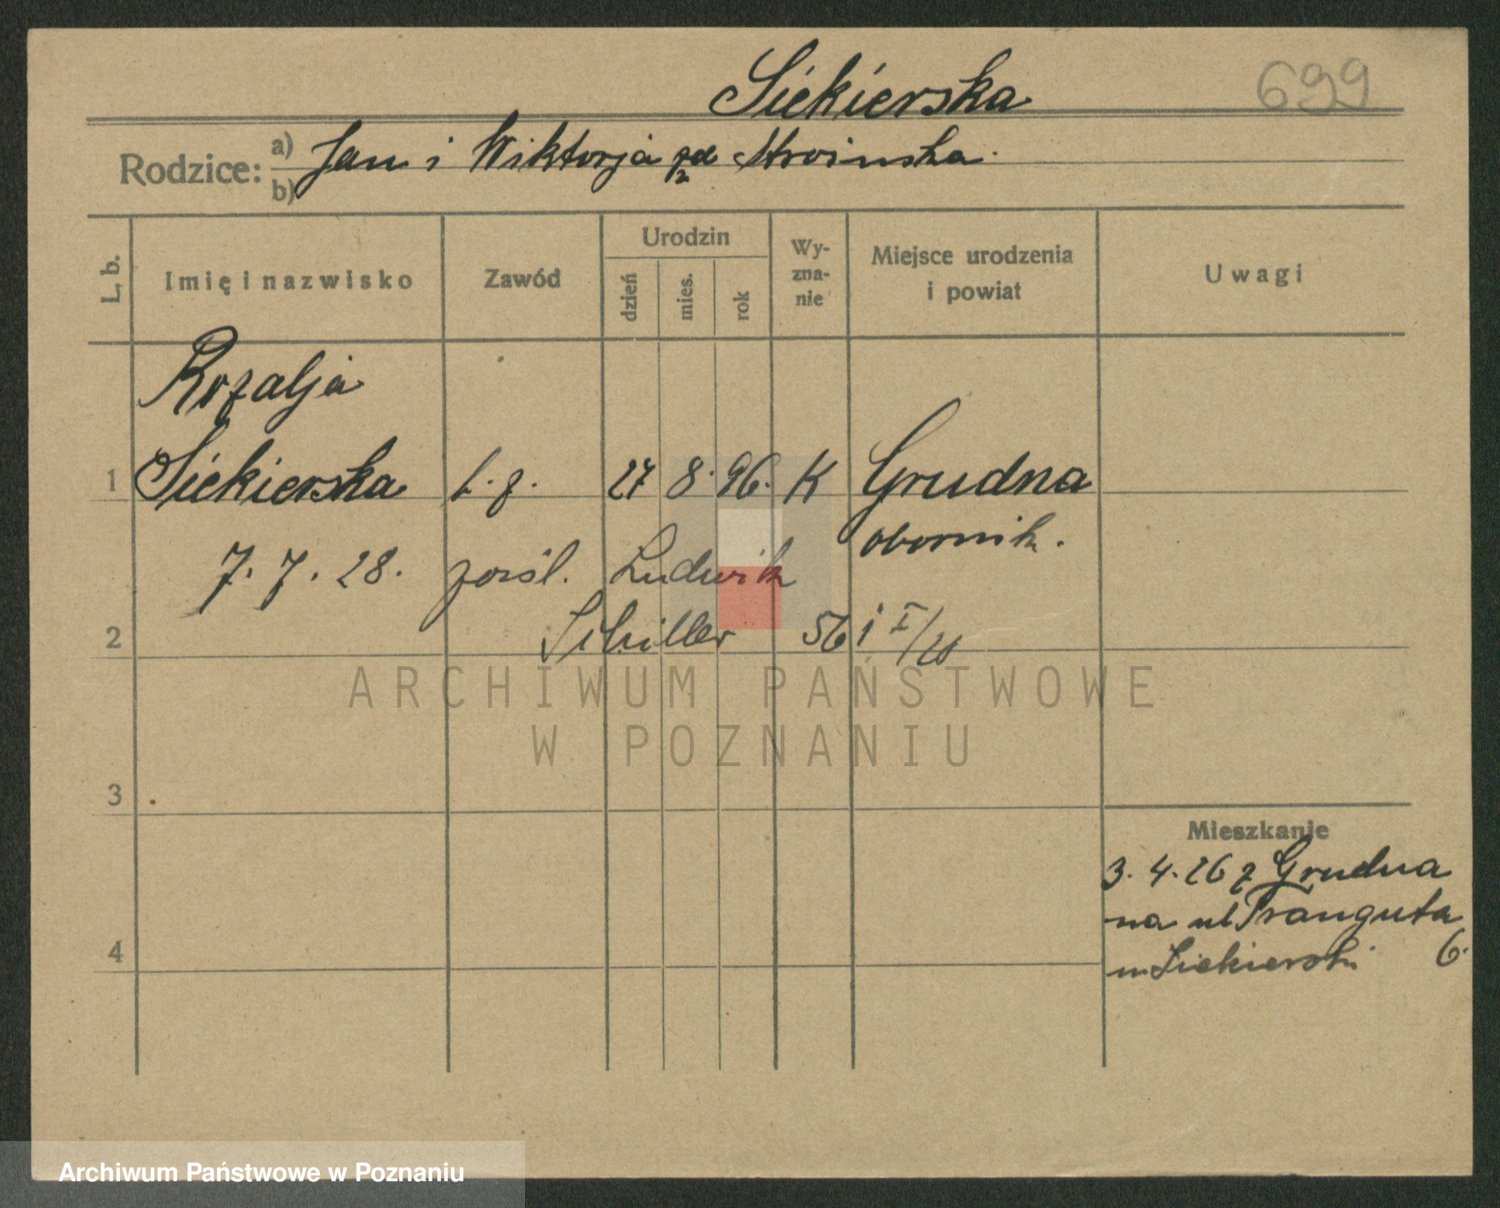 Siekierska
699
Rodzice:
a) Jan i Wiktorja
b)
L. b.
Imię i nazwisko
Zawód
Urodzin
dzień
mies.
rok
Wy-
zna-
nie
Miejsce urodzenia
i powiat
Uwagi
Rozalja
1 Siekierska b. z. 27 8. 96. K Grudna
obornik.
7. 7. 28. zaśl. Ludwik
2 Schiller 56
ARCHIWUM PAŃSTWOWE
W POZNANIU
3
Mieszkanie
3. 4. 26 z Grudna
na ul Trauguta
4 Siekierski 6.
Archiwum Państwowe w Poznaniu